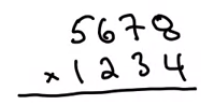 5678
×1234